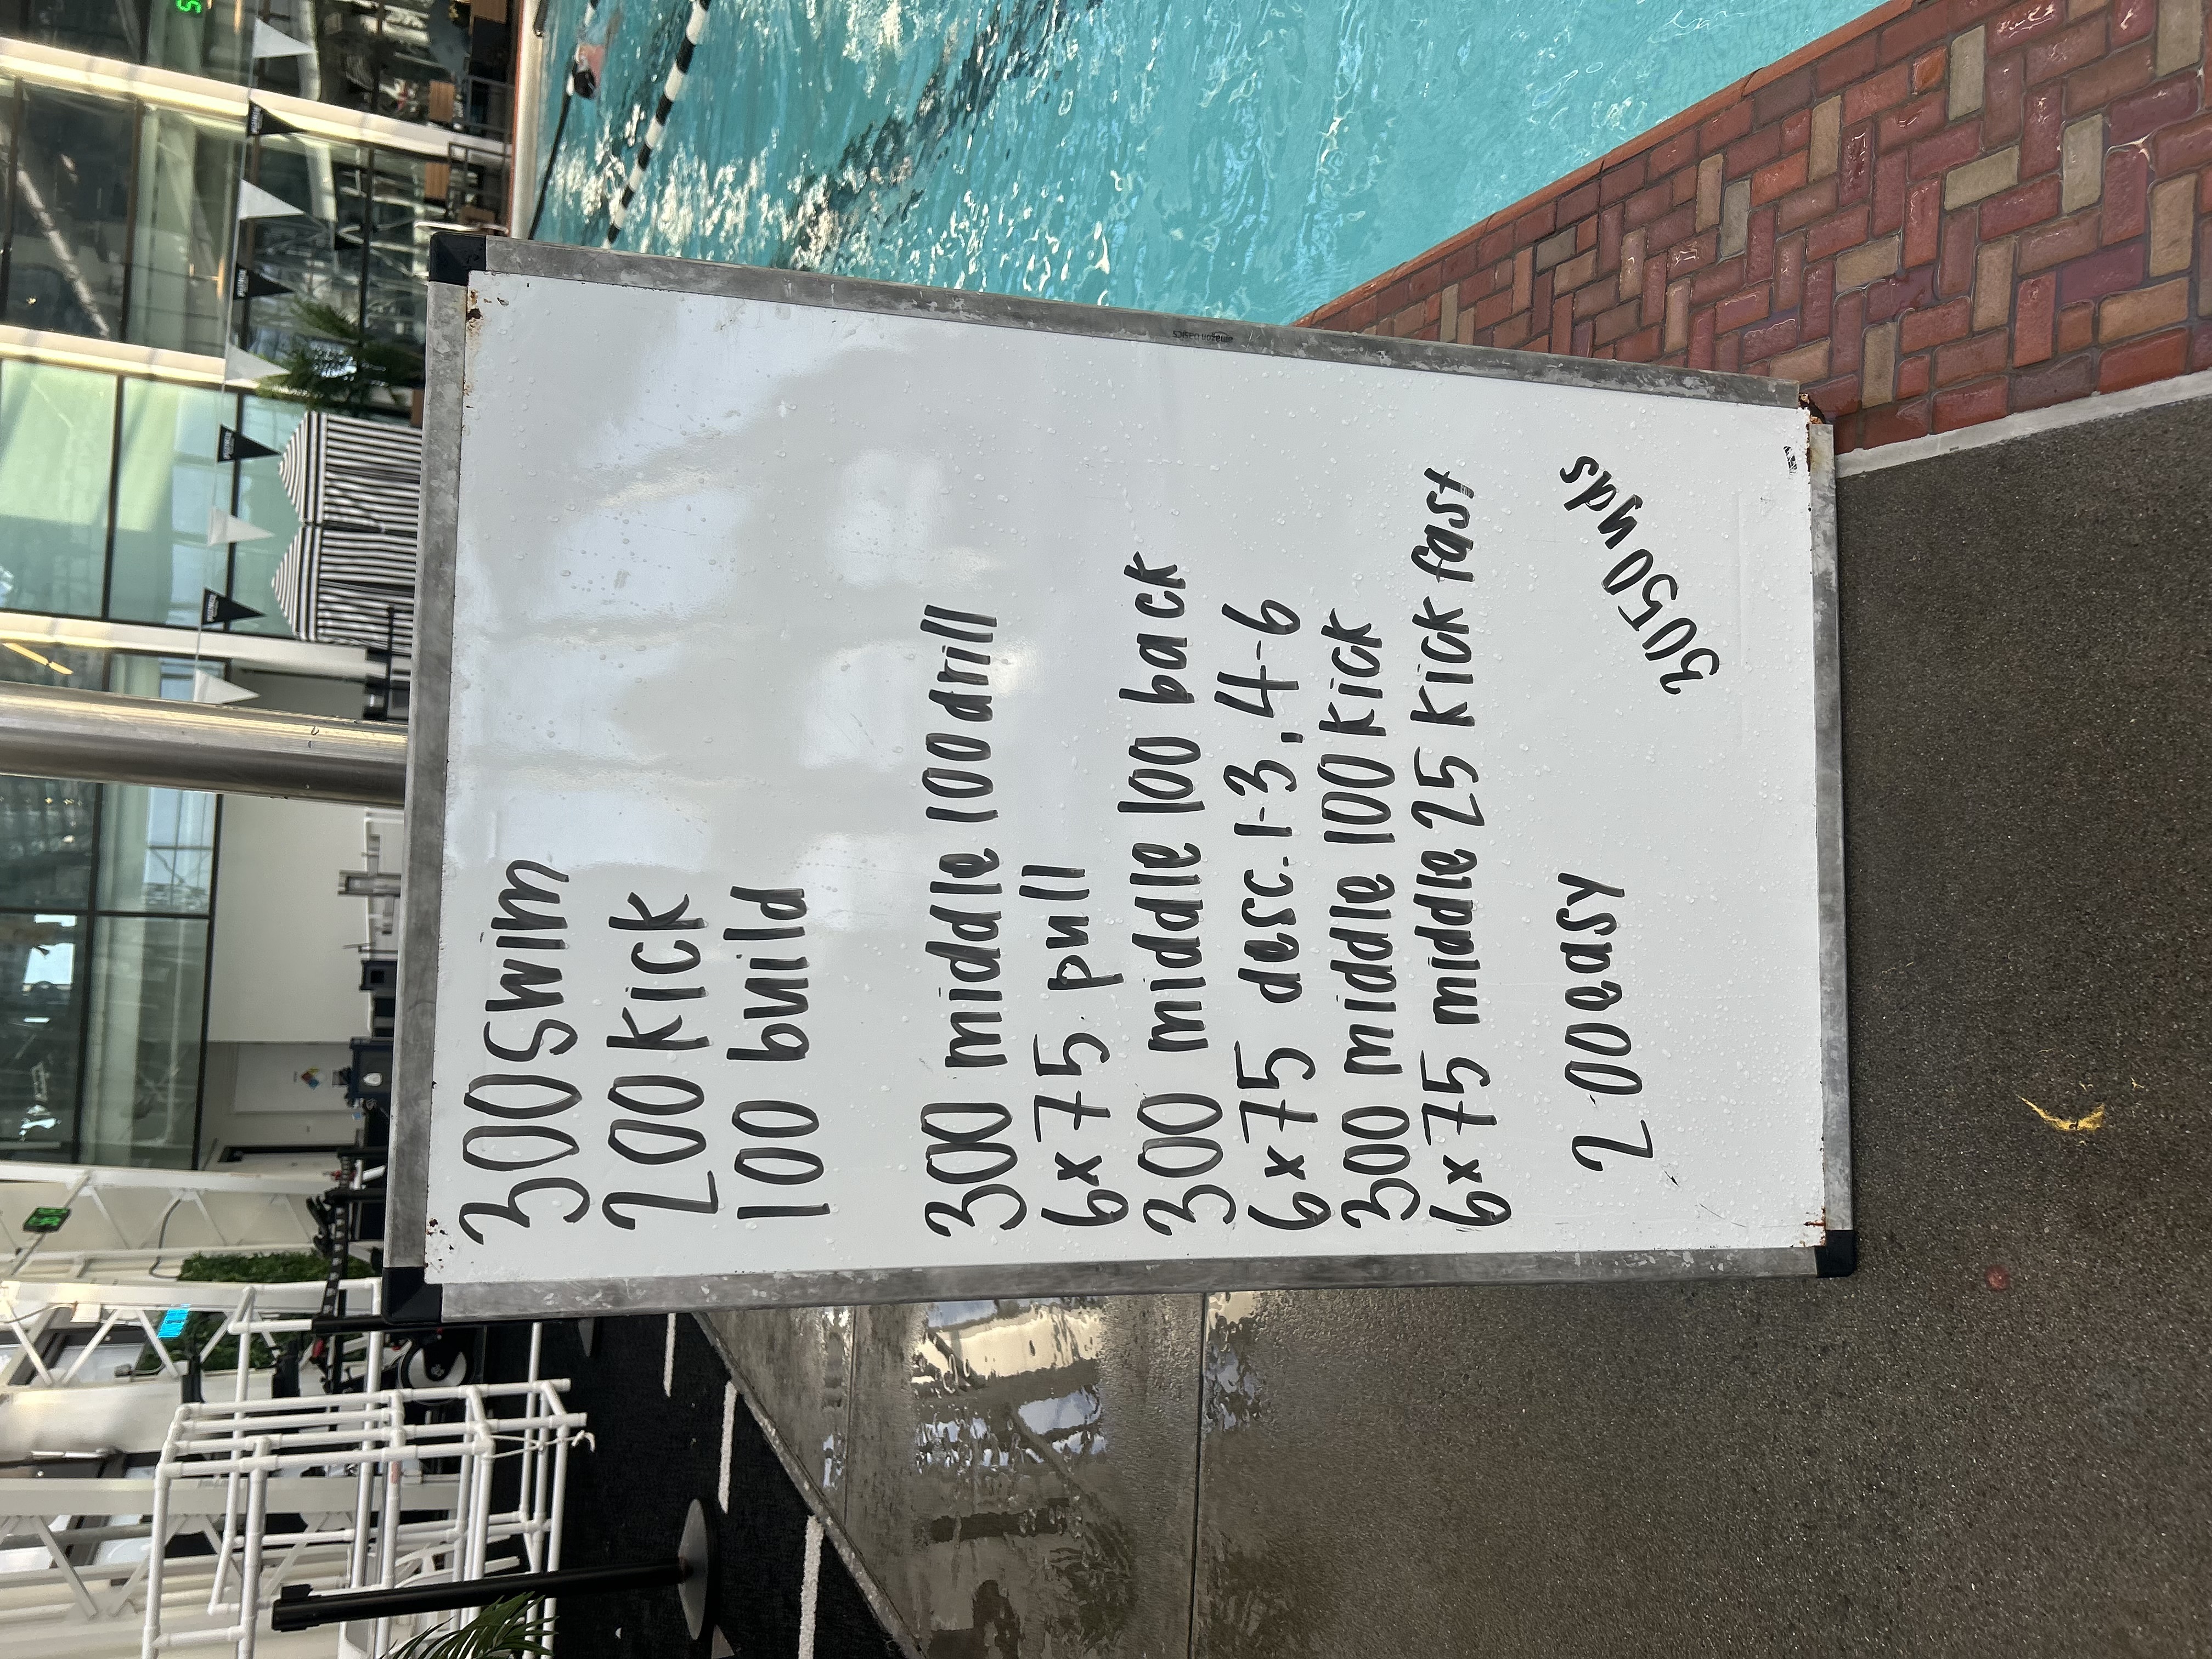 300 swim
200 kick
100 build
300 middle 100 drill
6x75 pull
300 middle 100 back
6x75 desc. 1-3, 4-6
300 middle 100 kick
6x75 middle 25 kick fast
200 easy
3050 yds
amazon basics